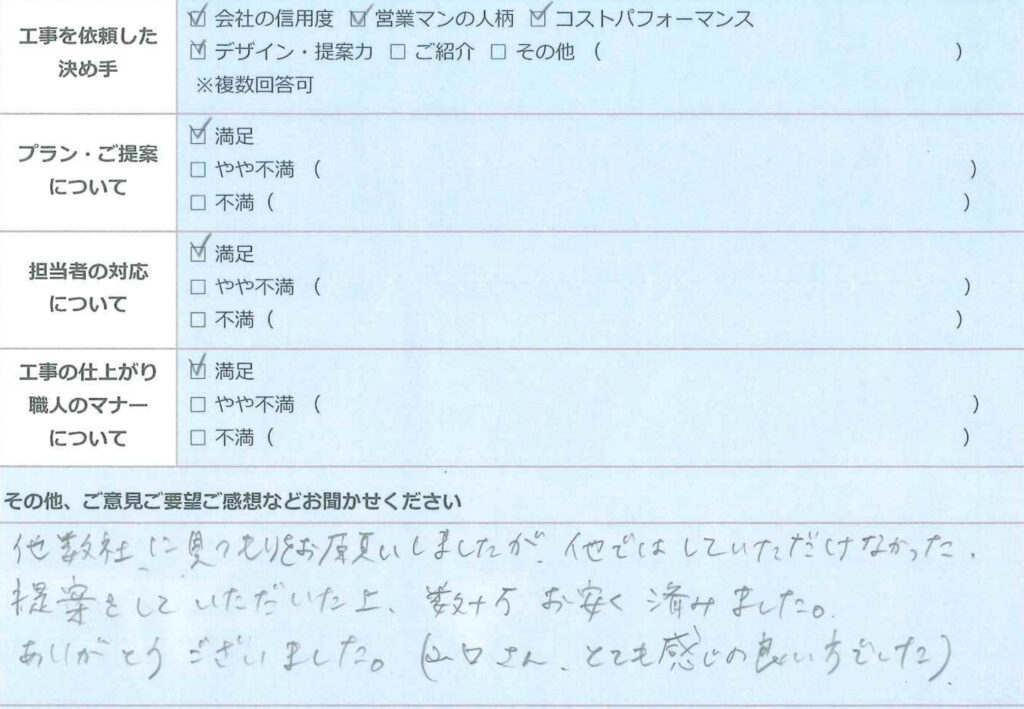 工事を依頼した
決め手
☑ 会社の信用度 ☑ 営業マンの人柄 ☑ コストパフォーマンス
☑ デザイン・提案力 □ ご紹介 □ その他 ( )
※複数回答可
プラン・ご提案
について
☑ 満足
□ やや不満 ( )
□ 不満 ( )
担当者の対応
について
☑ 満足
□ やや不満 ( )
□ 不満 ( )
工事の仕上がり
職人のマナー
について
☑ 満足
□ やや不満 ( )
□ 不満 ( )
その他、ご意見ご要望ご感想などお聞かせください
他数社に見つもりをお願いしましたが、他ではしていただけなかった、
提案をしていただいた上、数十万 お安く済みました。
ありがとうございました。(山口さん、とても感じの良い方でした)